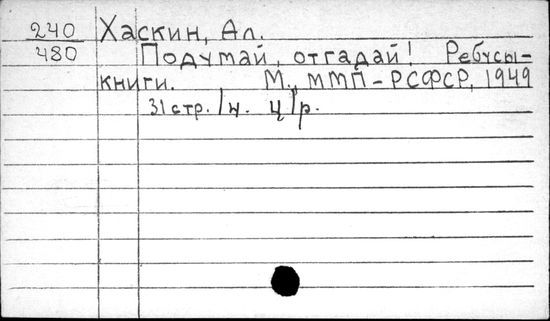 240 Хаскин, Ал.
480 Подумай, отгадай! Ребусы-
книги. М., ММП-РСФСР, 1949
31 стр. /н. ц/р.